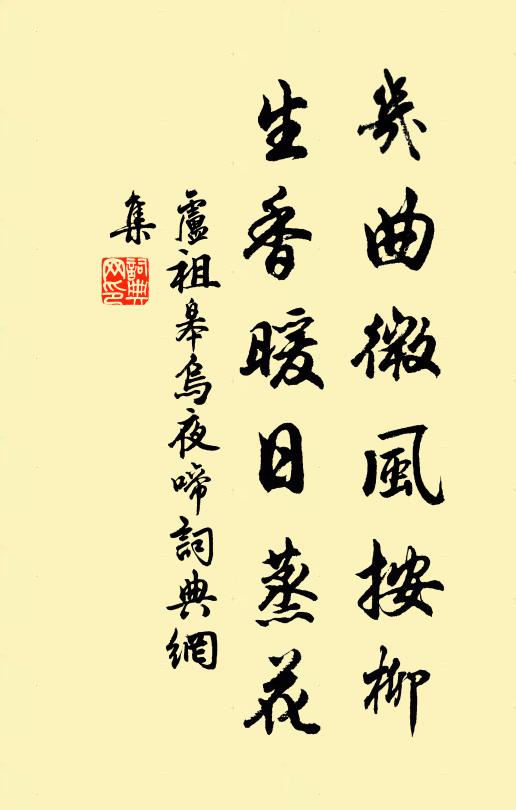 幾曲微風按柳
生香暖日蒸花
盧祖皋烏夜啼詞典網
集
詞典
网印